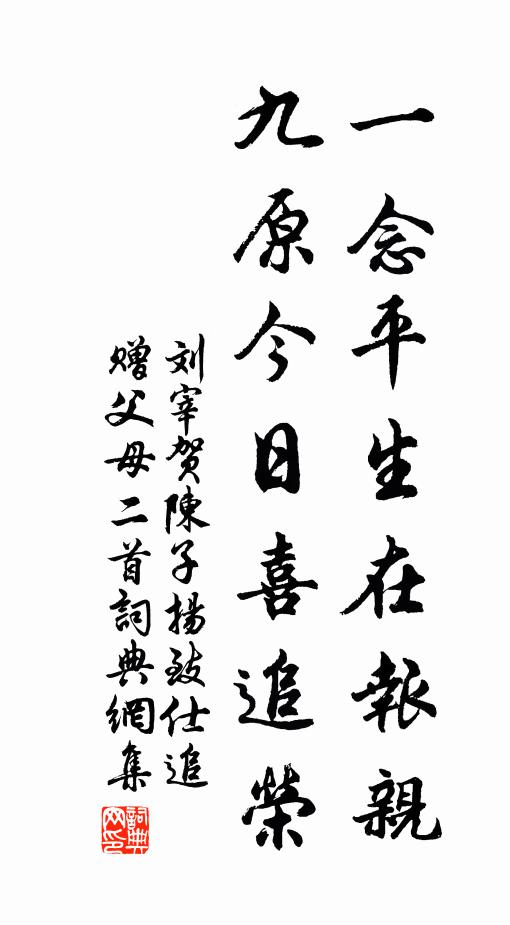 一念平生在報親
九原今日喜追榮
刘宰賀陳子揚致仕追
赠父母二首詞典網集
詞典
网印